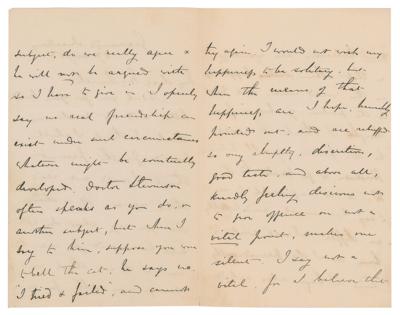 subject, do we really agree &
he will not be argued with
so I have to give in. I openly
say no real friendship can
exist under such circumstances
whatever might be eventually
developed. Doctor Stevenson
often speaks as you do, on
another subject, but when I
say to him, suppose you were
to bell the cat, he says no,
"I tried & failed", and cannot
try again. I would not wish my
happiness to be solitary. but
when the means of that
happiness, are I hope, humbly
pointed out, and are rebuffed
so very abruptly, discretion,
good taste, and above all,
kindly feeling desirous not
to give offence on not a
vital point, makes one
silent. I say not a
vital, for I believe the